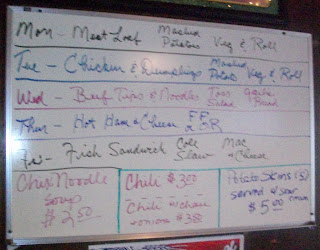 Mon - Meat Loaf Mashed Potatoes Veg & Roll
Tue - Chicken & Dumplings Mashed Potato Veg & Roll
Wed - Beef Tips & Noodles Toss Salad Garlic Bread
Thur - Hot Ham & Cheese FF
Fri - Fish Sandwich Cole Slaw Mac & Cheese
Chix Noodle
Soup
$2.50
Chili $3.00
Chili w/ cheese
+ onions $3.50
Potato Skins (5)
served w/ sour cream
$5.00